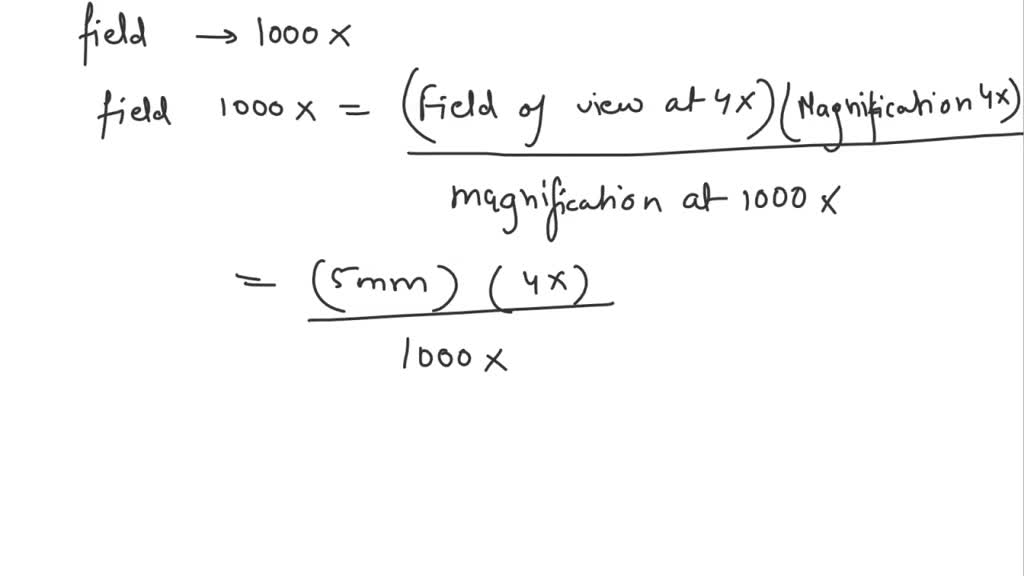 field → 1000 x
field 1000 x = (Field of view at 4x)(Magnification 4x)
magnification at 1000 x
= (5mm) (4x)
1000 x